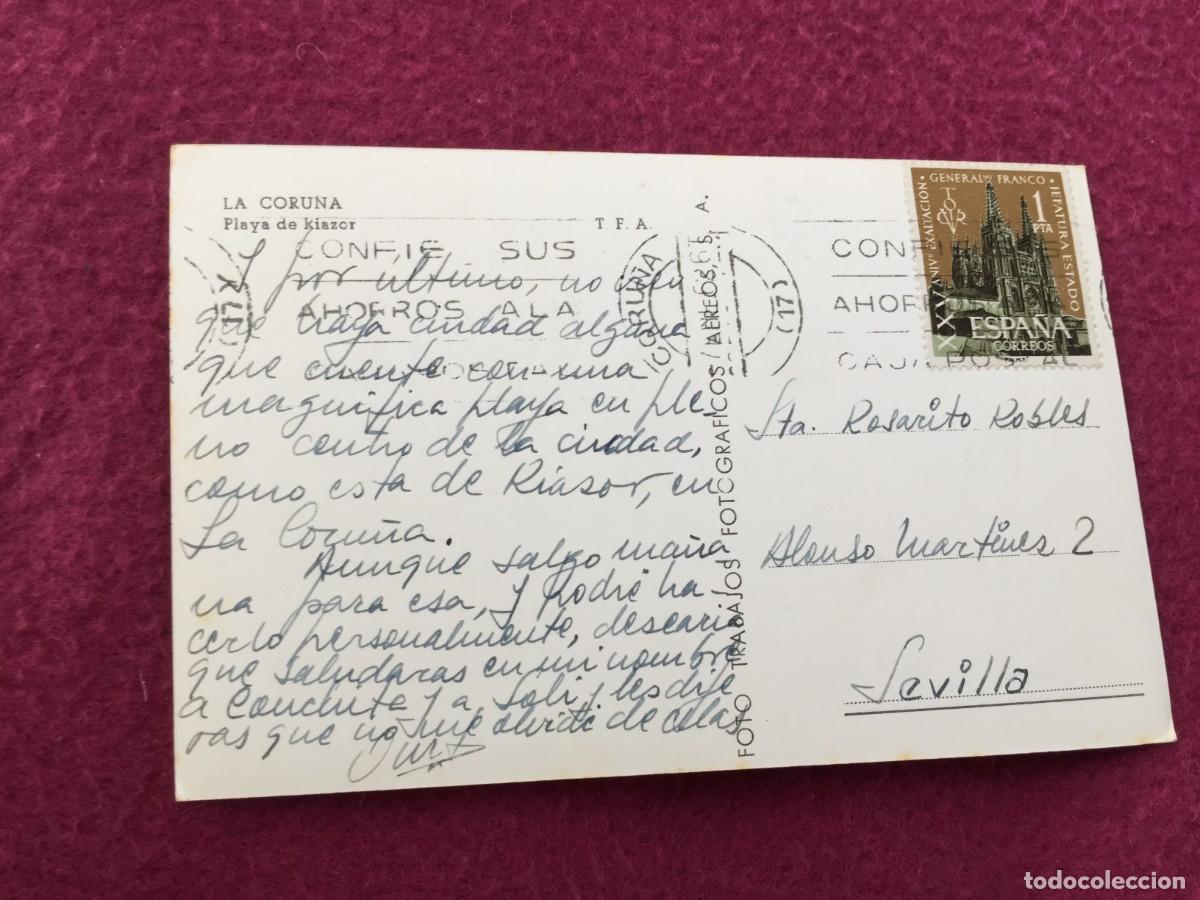 LA CORUÑA
Playa de Riazor
T. F. A.
CONFIE SUS
AHORROS A LA
Y por último, no creo
que haya ciudad alguna
que cuente con una
magnifica playa en ple
no centro de la ciudad,
como esta de Riasor, en
La Coruña.
Aunque salgo maña
na para esa, y podré ha-
cerlo personalmente, desearia
que saludaras en mi nombre
a Conchita y a Soli y les dije
ras que no me olvidé de ellas
FOTO TRABAJOS FOTOGRAFICOS AEREOS, S. A.
CORUÑA
(17)
CONFIE
AHORROS
CAJA POSTAL
XXV ANIVº EXALTACION GENERALMO FRANCO JEFATURA ESTADO
1
PTA
ESPAÑA
CORREOS
Sta. Rosarito Robles
Alonso Martines 2
Sevilla
todocoleccion